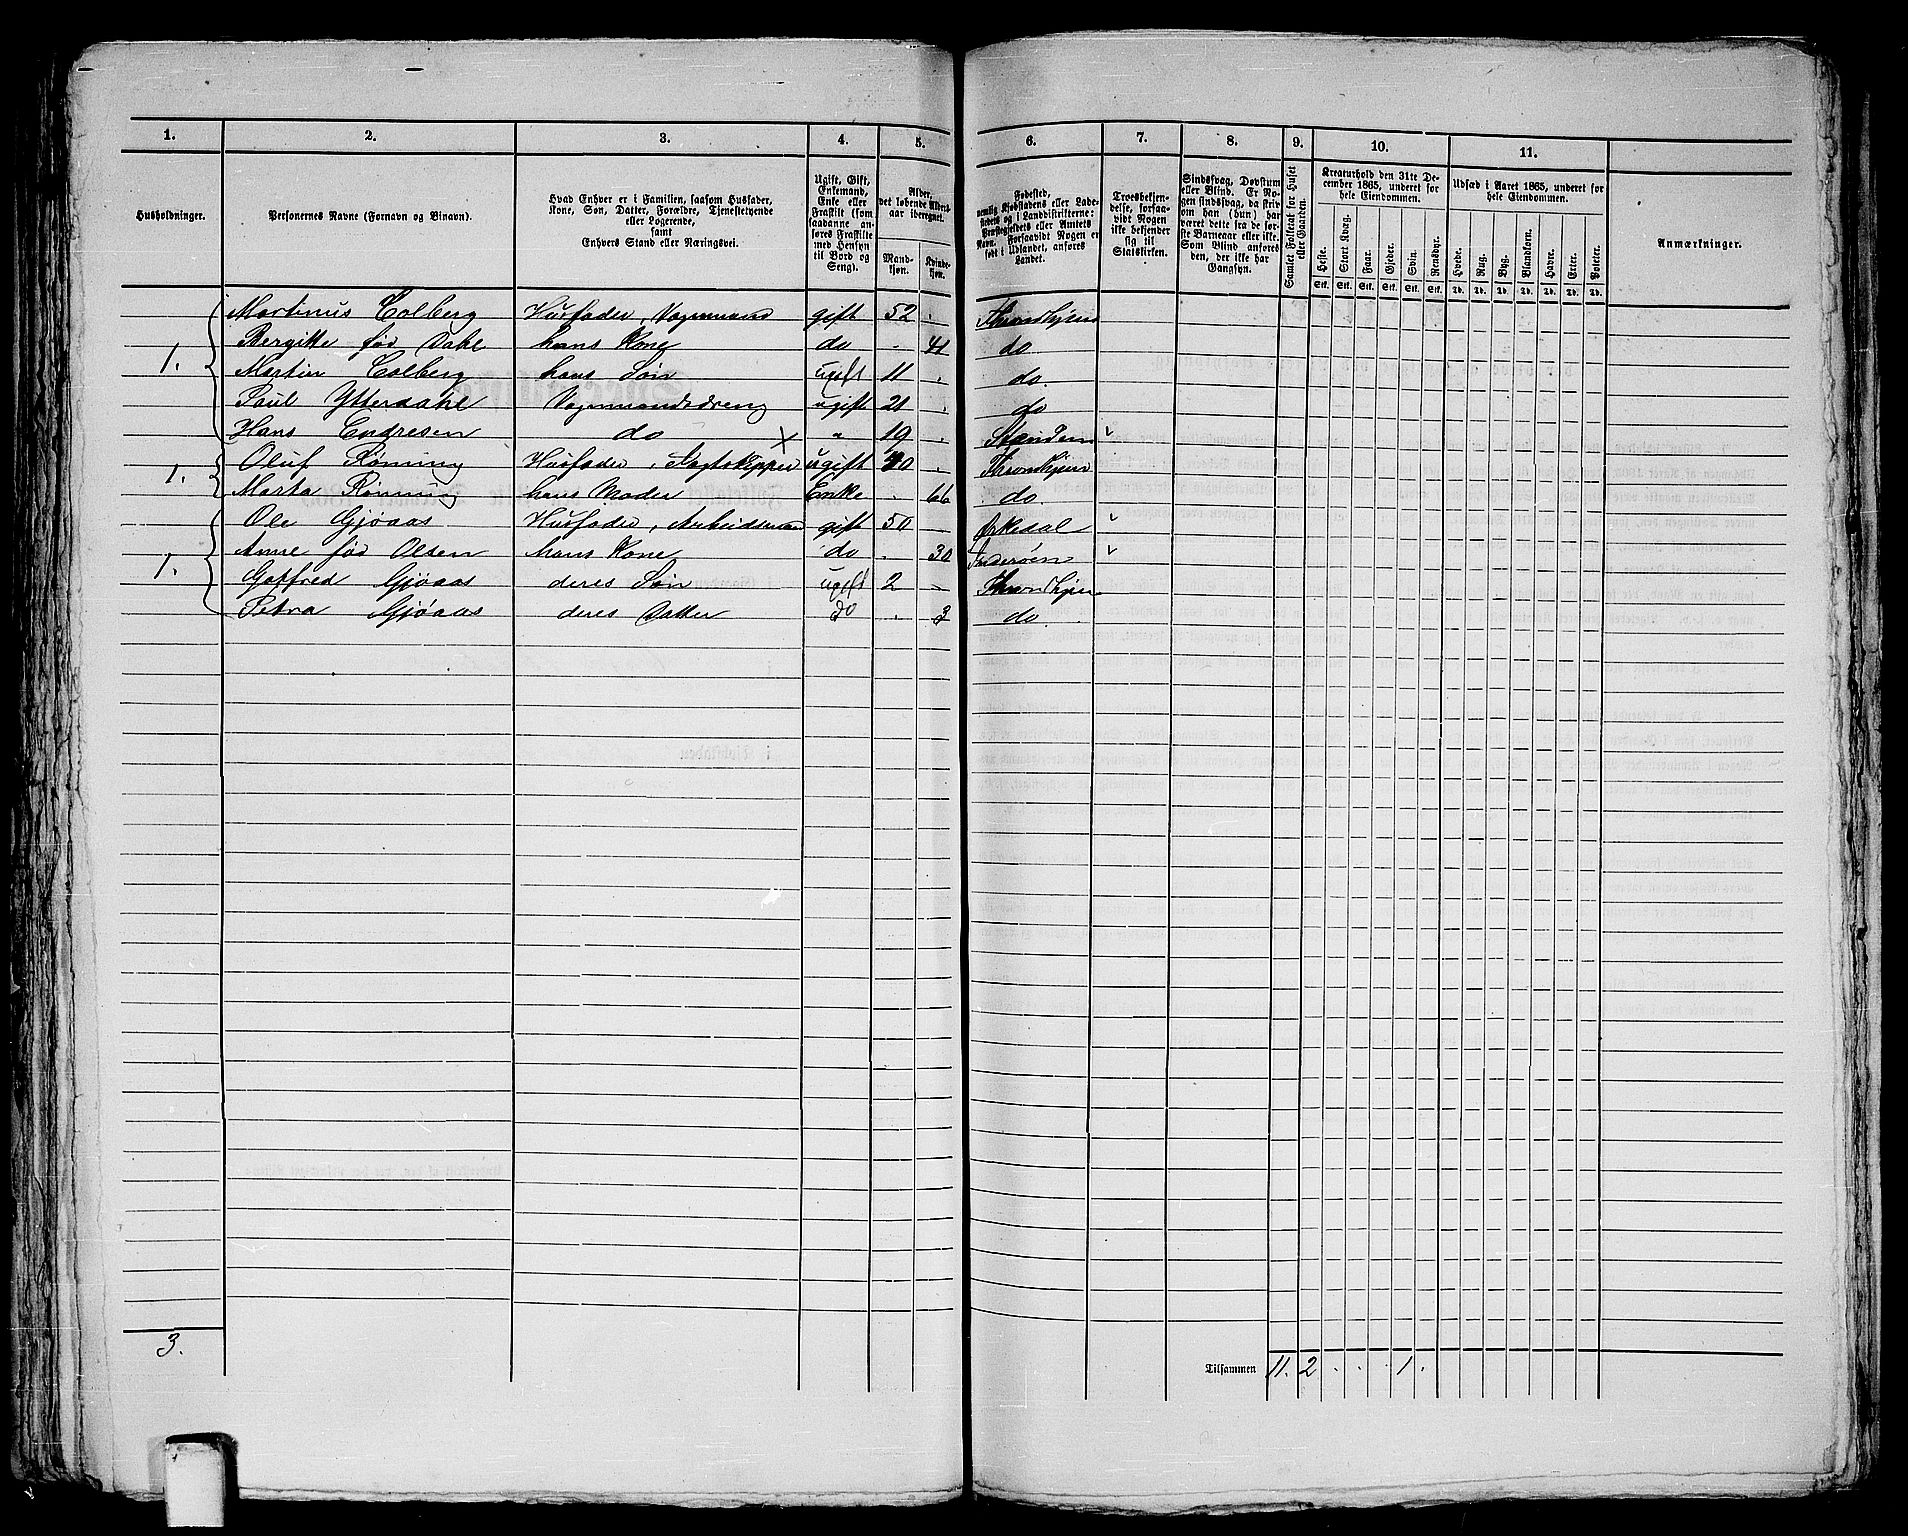 1. 2. 3. 4. 5. 6. 7. 8. 9. 10. 11.
Husholdninger.
Personernes Navne (Fornavn og Binavn).
Hvad Enhver er i Familien, saasom Husfader,
Kone, Søn, Datter, Forældre, Tjenestetyende
eller Logerende,
samt
Enhvers Stand eller Næringsvei.
Ugift, Gift,
Enkemand,
Enke eller
Fraskilt (som
saadanne an-
føres Fraskilte
med Hensyn
til Bord og
Seng).
Alder,
det løbende Alders-
aar iberegnet.
Mand-
kjøn.
Kvinde-
kjøn.
Fødested,
nemlig Kjøbstadens eller Lade-
stedets og i Landdistrikterne:
Præstegjeldets eller Amtets
Navn. Forsaavidt Nogen er
født i Udlandet, anføres
Landet.
Troesbekjen-
delse, forsaa-
vidt Nogen
ikke bekjender
sig til
Statskirken.
Sindssvag, Døvstum
eller Blind. Er No-
gen sindssvag, da skriv
om han (hun) har
været dette fra de før-
ste Barneaar eller ikke.
Som Blind anføres
den, der ikke har
Gangsyn.
Samlet Folketal for Huset
eller Gaarden.
Kreaturhold den 31te De-
cember 1865, underet for
hele Eiendommen.
Heste. Stort Kvæg. Faar. Gjeder. Svin. Rensdyr.
Stk. Stk. Stk. Stk. Stk. Stk.
Udsæd i Aaret 1865, underet for
hele Eiendommen.
Hvede. Rug. Byg. Blandkorn. Havre. Erter. Poteter.
Td. Td. Td. Td. Td. Td. Td.
Anmærkninger.
Martinus Colberg Husfader, Vognmand gift 52 . Throndhjem
Bergitte fød Dahl hans Kone do . 41 do
1. Martin Colberg hans Søn ugift 11 . do.
Paul Ytterdahl Vognmandsdreng ugift 21 . do
Hans Endresen do × " 19 .
1. Oluf Rønning Husfader, Jagtskipper ugift 40 . Thronhjem
Marta Rønning hans Moder Enke . 66 do
Ole Gjøaas Husfader, Arbeidsman gift 50 . Ørkedal
1. Anne fød Olsen hans Kone do . 30 Inderøen
Gotfred Gjøaas deres Søn ugift 2 – Throndhjem
Petra Gjøaas deres Datter do . 3 do.
3.
Tilsammen 11. 2 . . . 1 .